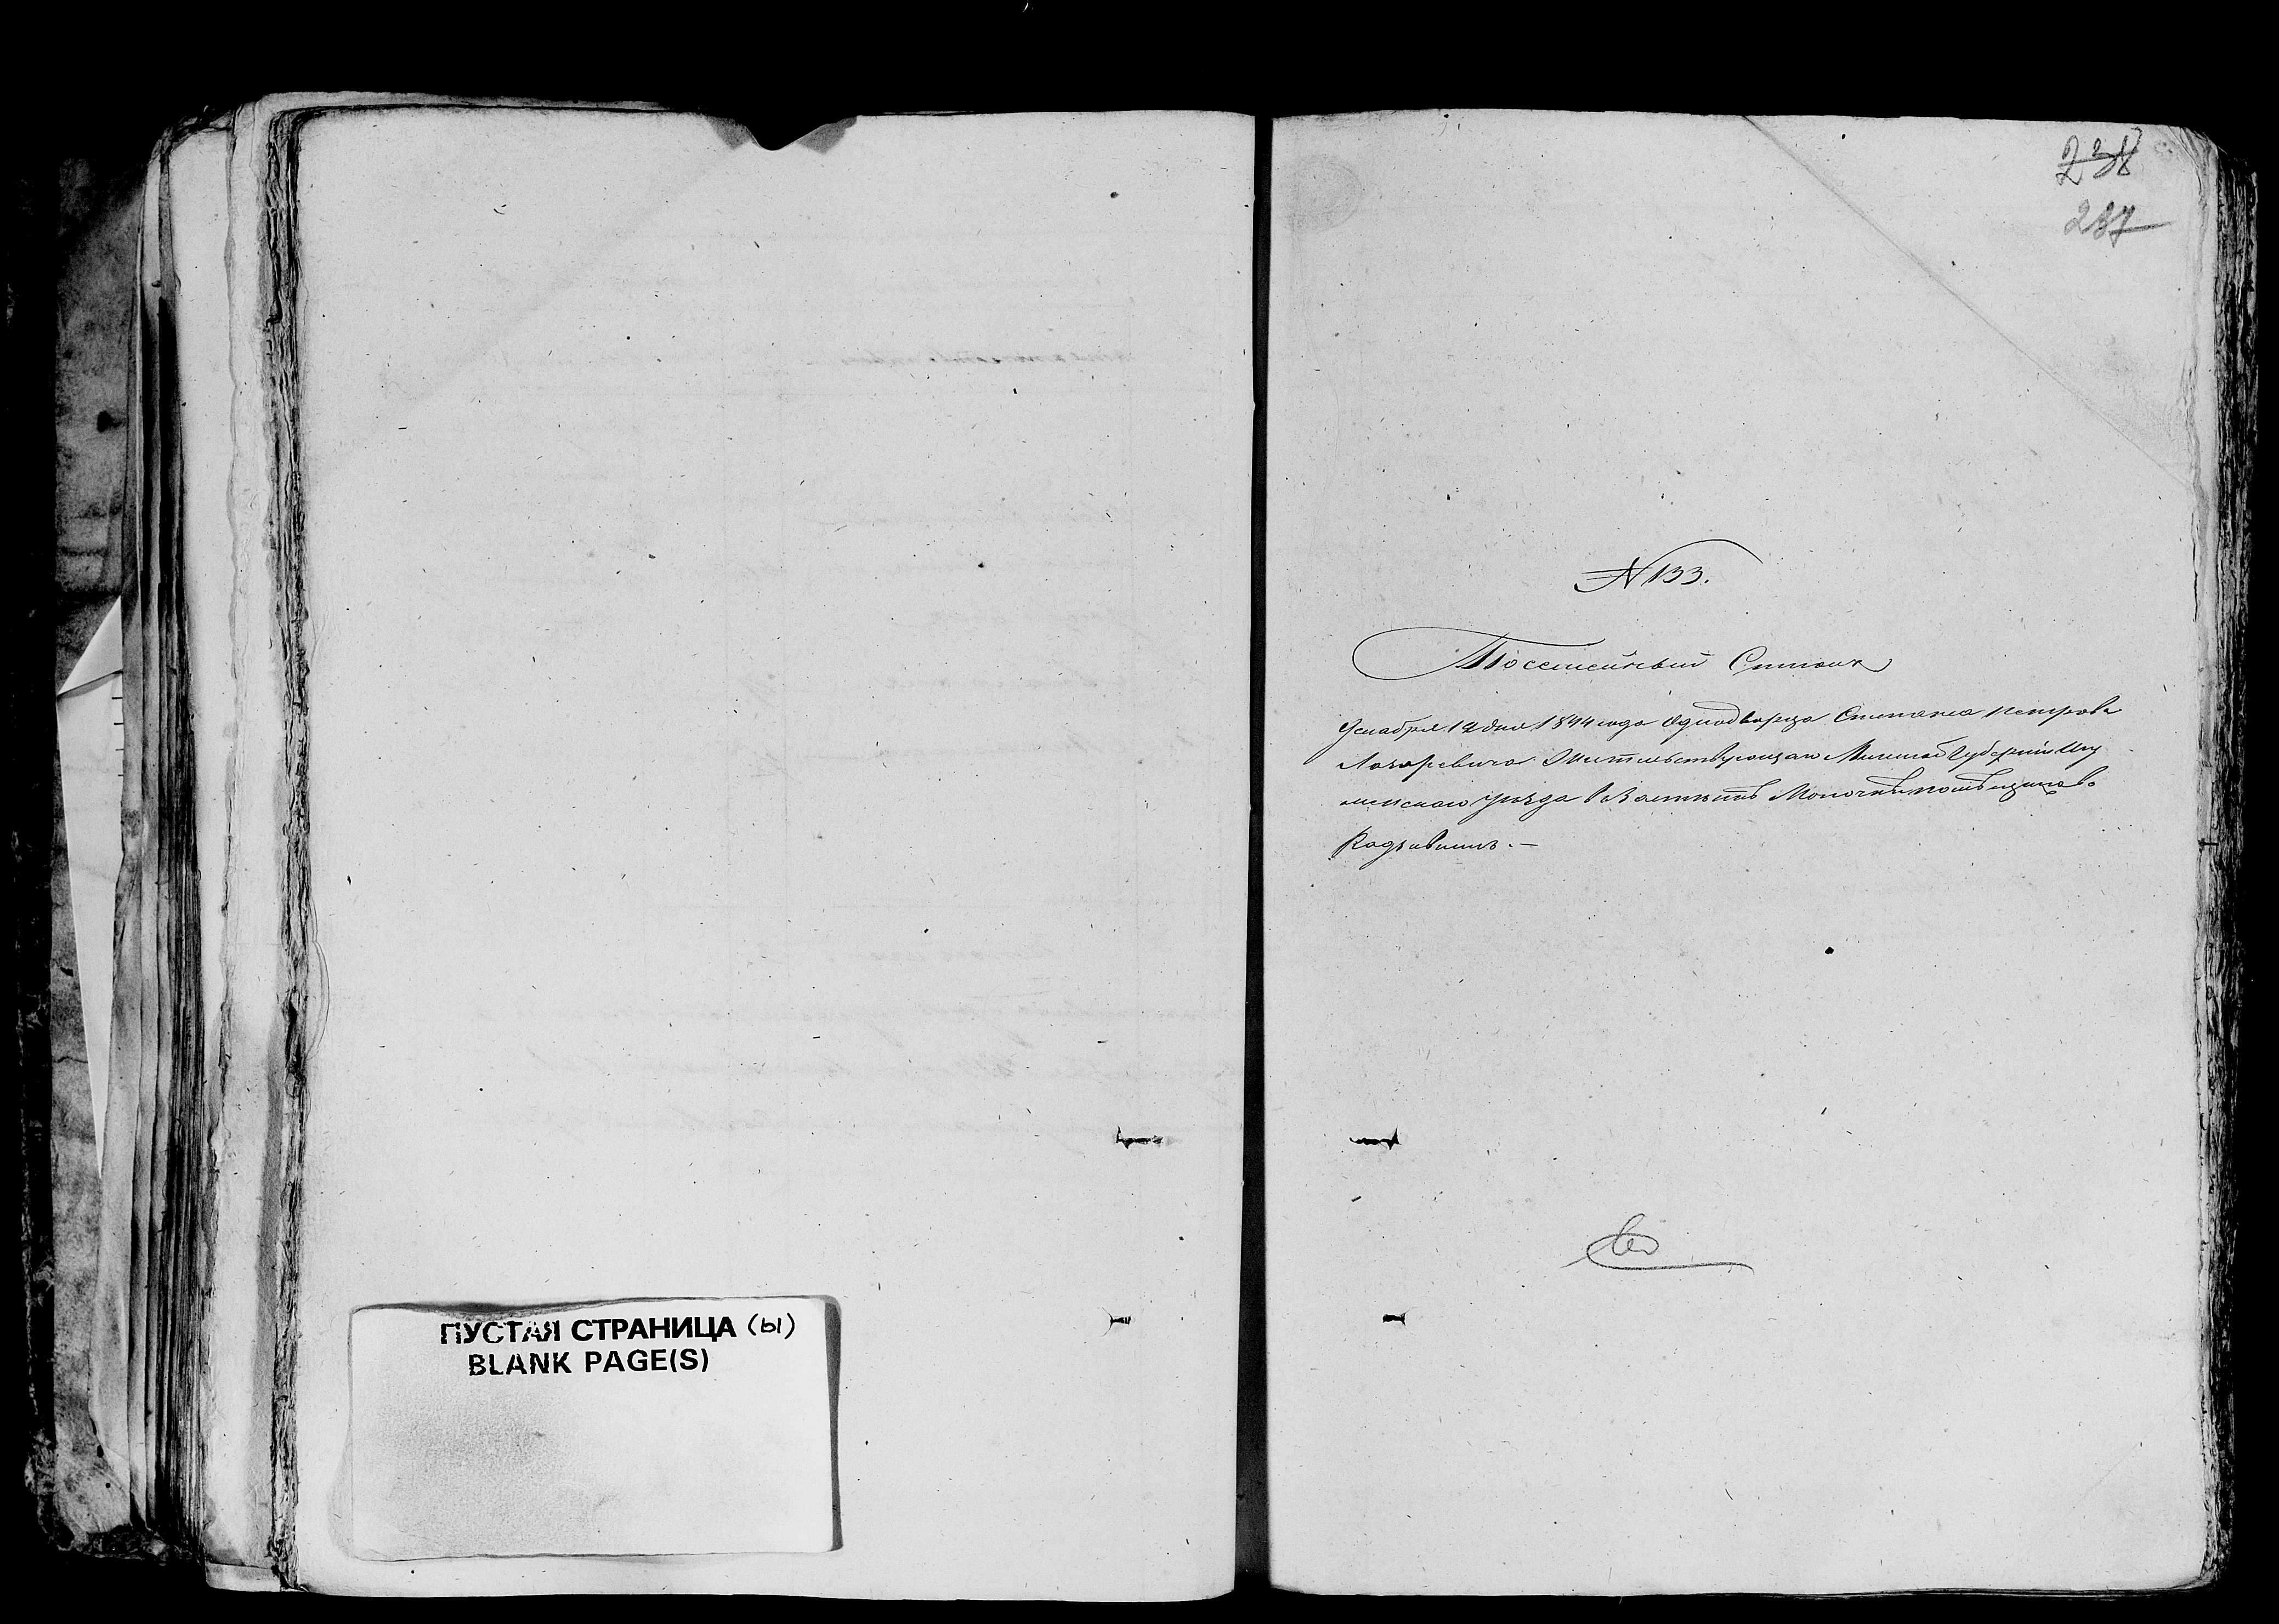 ПУСТАЯ СТРАНИЦА (ы)
BLANK PAGE(S)
238
237
N 133.
Посемейный Список
Декабря 12 дня 1844 года Однодворца Степана Петрова
Лазаревича Жительствующаго Минской Губернии Игу
менскаго уезда
Радзивилъ. —